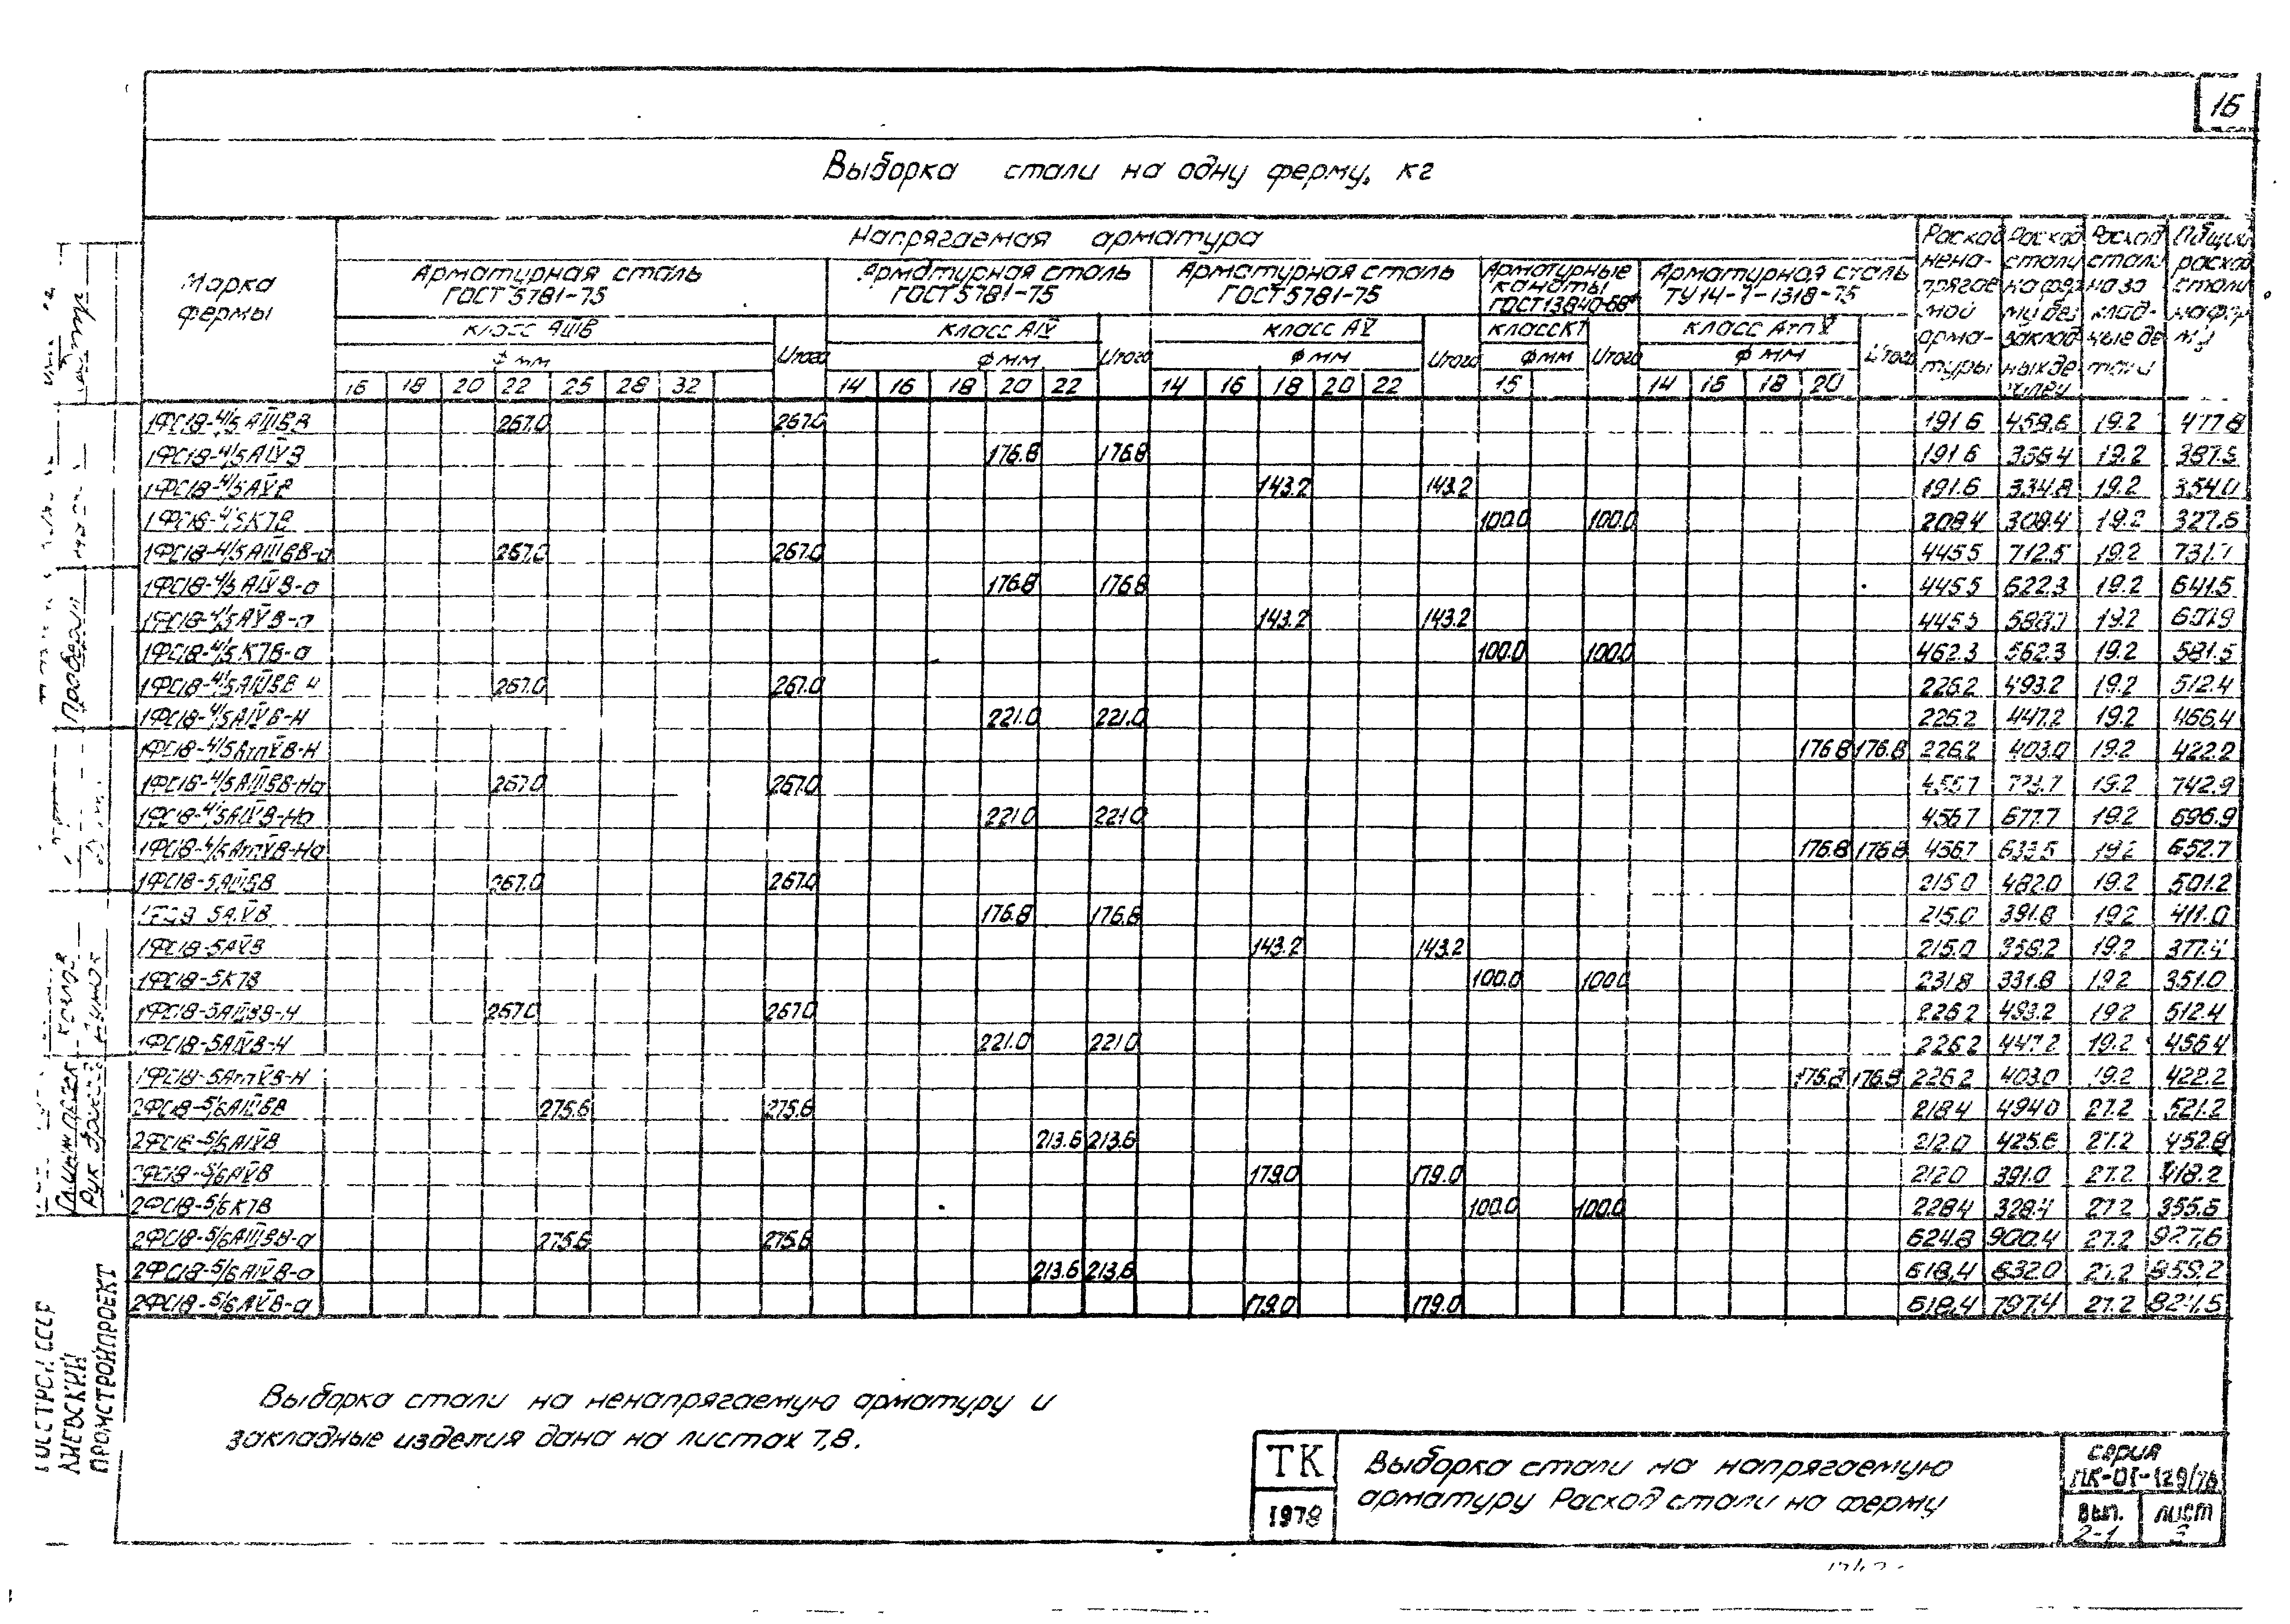 16
Выборка стали на одну ферму, кг
Марка фермы
Напрягаемая арматура
Арматурная сталь ГОСТ 5781-75
Арматурная сталь ГОСТ 5781-75
Арматурная сталь ГОСТ 5781-75
Арматурные канаты ГОСТ 13840-68*
Арматурная сталь ТУ 14-1-1318-75
Расход ненапрягаемой арматуры
Расход стали на ферму без закладных
Расход стали на закладные детали
Общий расход стали на ферму
класс АШВ
Итого
класс АIV
Итого
класс АV
Итого
класс К7
Итого
класс АтпV
Итого
Ф мм
Ф мм
Ф мм
Ф мм
Ф мм
16 18 20 22 25 28 32
14 16 18 20 22
14 16 18 20 22
15
14 16 18 20
1ФС18-4/5АШВВ 267.0 267.0 191.6 458.6 19.2 477.8
1ФС18-4/5АIVВ 176.8 176.8 191.6 368.4 19.2 387.6
1ФС18-4/5АVВ 143.2 143.2 191.6 334.8 19.2 354.0
1ФС18-4/5К7В 100.0 100.0 208.4 308.4 19.2 327.6
1ФС18-4/5АШВВ-а 267.0 267.0 445.5 712.5 19.2 731.7
1ФС18-4/5АIVВ-а 176.8 176.8 445.5 622.3 19.2 641.5
1ФС18-4/5АVВ-а 143.2 143.2 445.5 588.7 19.2 607.9
1ФС18-4/5К7В-а 100.0 100.0 462.3 562.3 19.2 581.5
1ФС18-4/5АШВВ-Н 267.0 267.0 226.2 493.2 19.2 512.4
1ФС18-4/5АIVВ-Н 221.0 221.0 226.2 447.2 19.2 466.4
1ФС18-4/5АтпVВ-Н 176.8 176.8 226.2 403.0 19.2 422.2
1ФС18-4/5АШВВ-На 267.0 267.0 456.7 723.7 19.2 742.9
1ФС18-4/5АIVВ-На 221.0 221.0 456.7 677.7 19.2 696.9
1ФС18-4/5АтпVВ-На 176.8 176.8 456.7 633.5 19.2 652.7
1ФС18-5АШВВ 267.0 267.0 215.0 482.0 19.2 501.2
1ФС18-5АIVВ 176.8 176.8 215.0 391.8 19.2 411.0
1ФС18-5АVВ 143.2 143.2 215.0 358.2 19.2 377.4
1ФС18-5К7В 100.0 100.0 231.8 331.8 19.2 351.0
1ФС18-5АШВВ-Н 267.0 267.0 226.2 493.2 19.2 512.4
1ФС18-5АIVВ-Н 221.0 221.0 226.2 447.2 19.2 466.4
1ФС18-5АтпVВ-Н 176.8 176.8 226.2 403.0 19.2 422.2
2ФС18-5/6АШВВ 275.6 275.6 218.4 494.0 27.2 521.2
2ФС18-5/6АIVВ 213.6 213.6 212.0 425.6 27.2 452.8
2ФС18-5/6АVВ 179.0 179.0 212.0 391.0 27.2 418.2
2ФС18-5/6К7В 100.0 100.0 228.4 328.4 27.2 355.6
2ФС18-5/6АШВВ-а 275.6 275.6 624.8 900.4 27.2 927.6
2ФС18-5/6АIVВ-а 213.6 213.6 618.4 832.0 27.2 859.2
2ФС18-5/6АVВ-а 179.0 179.0 618.4 797.4 27.2 824.6
Выборка стали на ненапрягаемую арматуру и
закладные изделия дана на листах 7,8.
ТК
1978
Выборка стали на напрягаемую
арматуру Расход стали на ферму
серия
ПК-01-129/78
Вып.
2-1
лист
Проверил
ГОССТРОЙ СССР
КИЕВСКИЙ
ПРОМСТРОЙПРОЕКТ